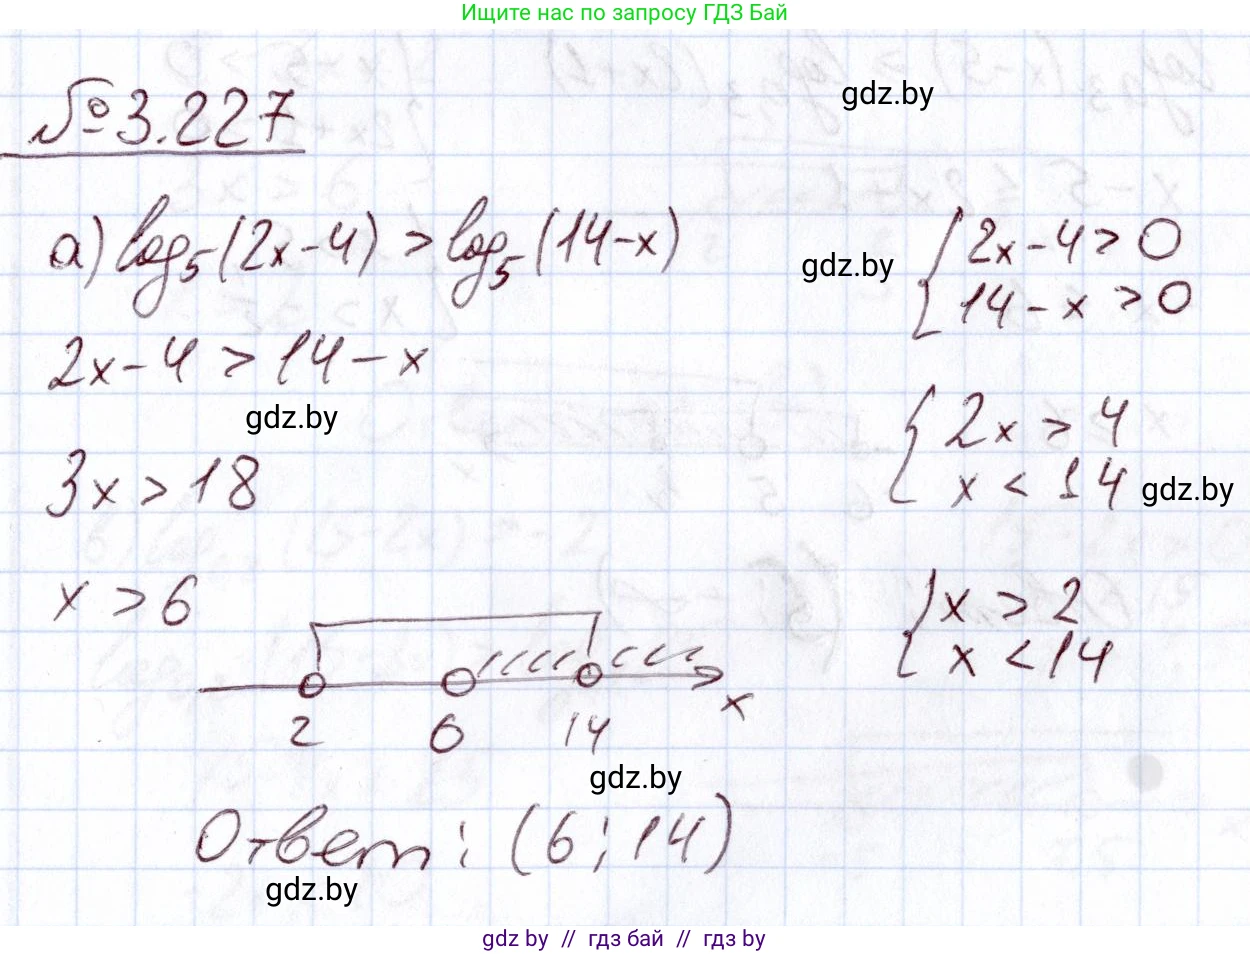 Ищите нас по запросу ГДЗ Бай
№3.227
gdz.by
а) log₅(2x-4) > log₅(14-x)
gdz.by
{2x-4 > 0
14-x > 0
2x-4 > 14-x
gdz.by
{2x > 4
x < 14
gdz.by
3x > 18
x > 6
{x > 2
x < 14
2 6 14 x
gdz.by
Ответ: (6; 14)
gdz.by
gdz by // гдз бай // гдз by